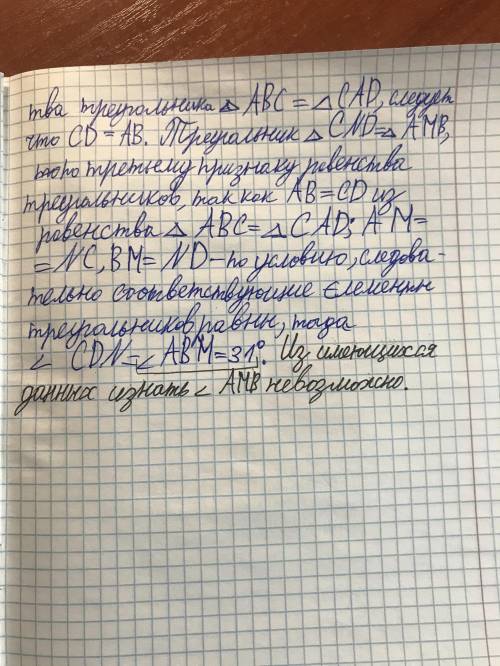 тва треугольника △ ABC = △ CAD, следует
что CD = AB. Треугольник △ CND = △ AMB,
по третьему признаку равенства
треугольников, так как AB = CD из
равенства △ ABC = △ CAD; AM =
= NC, BM = ND – по условию, следова-
тельно соответствующие елементы
треугольников равны, тогда
∠ CDN = ∠ ABM = 31°. Из имеющихся
данных узнать ∠ AMB невозможно.